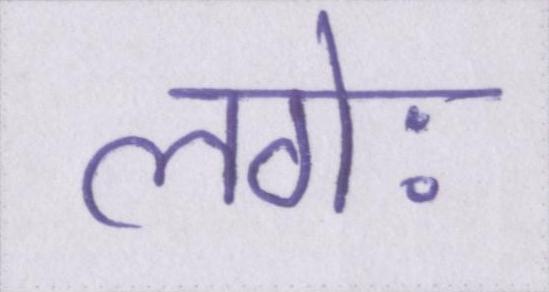 लगेः